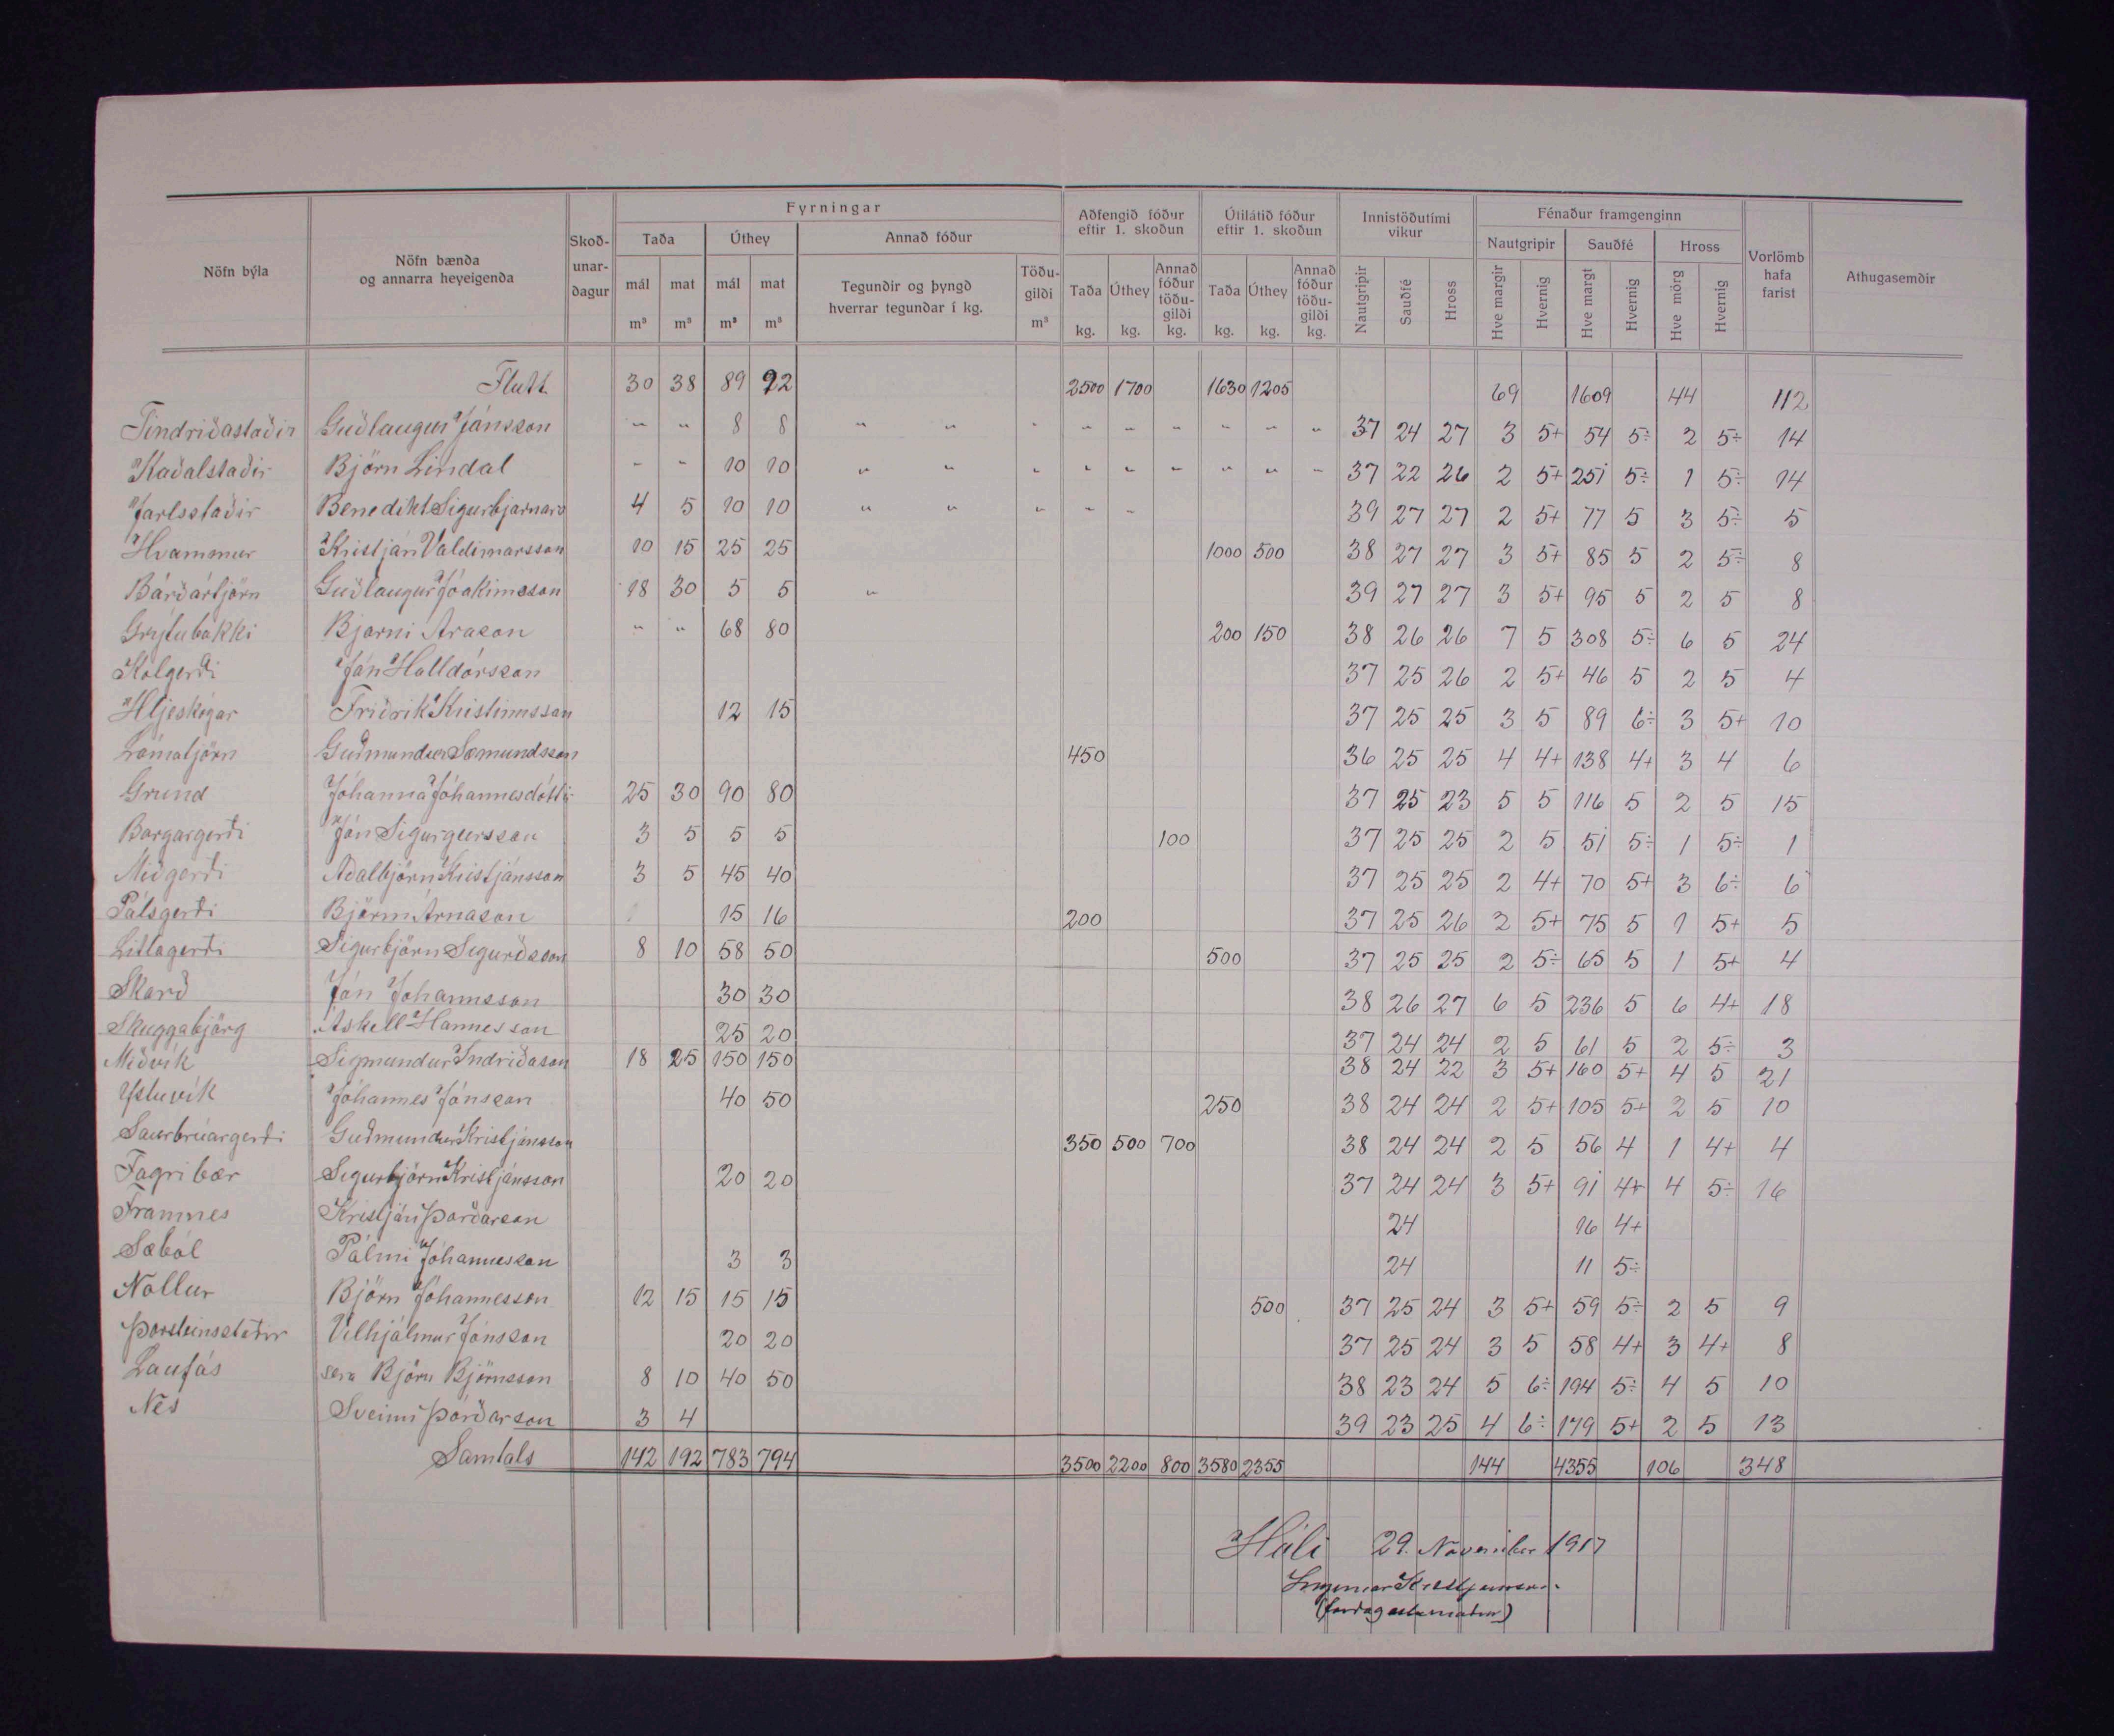 Fyrningar
Aðfengið fóður eftir 1. skoðun
Útilátið fóður eftir 1. skoðun
Innistöðutími vikur
Fénaður framgenginn
Nöfn býla
Nöfn bænda og annarra heyeigenda
Skoð-unar-dagur
Taða
Úthey
Annað fóður
Nautgripir
Sauðfé
Hross
Vorlömb hafa farist
Athugasemdir
mál m³ mat m³ mál m³ mat m³
Tegundir og þyngd hverrar tegundar í kg.
Töðu-gildi m³
Taða kg. Úthey kg. Annað fóður töðu-gildi kg.
Taða kg. Úthey kg. Annað fóður töðu-gildi kg.
Nautgripir Sauðfé Hross
Hve margir Hvernig Hve margt Hvernig Hve mörg Hvernig
Flutt 30 38 89 92 2500 1700 1630 1205 69 1609 44 112
Tindriðastaðir Guðlaugur Jónsson " " 8 8 " " " " " " " " " 37 24 27 3 5+ 54 5÷ 2 5÷ 14
Kaðalstaðir Björn Lindal " " 10 10 " " " " " " " " " 37 22 26 2 5+ 251 5÷ 1 5÷ 14
Jarlsstaðir Benedikt Sigurbjarnars 4 5 10 10 " " " " " 39 27 27 2 5+ 77 5 3 5÷ 5
Hvammur Kristján Valdimarsson 10 15 25 25 1000 500 38 27 27 3 5+ 85 5 2 5÷ 8
Bárðartjörn Guðlaugur Jóakimsson 18 30 5 5 " 39 27 27 3 5+ 95 5 2 5 8
Grýtubakki Bjarni Arason " " 68 80 200 150 38 26 26 7 5 308 5÷ 6 5 24
Kolgerði Jón Halldórsson 37 25 26 2 5+ 46 5 2 5 4
Hljeskógar Friðrik Kristinsson 12 15 37 25 25 3 5 89 6÷ 3 5+ 10
Lómatjörn Guðmundur Sæmundsson 450 36 25 25 4 4+ 138 4+ 3 4 6
Grund Jóhanna Jóhannesdóttir 25 30 90 80 37 25 23 5 5 116 5 2 5 15
Borgargerði Jón Sigurgeirsson 3 5 5 5 100 37 25 25 2 5 51 5÷ 1 5÷ 1
Miðgerði Aðalbjörn Kristjánsson 3 5 45 40 37 25 25 2 4+ 70 5+ 3 6÷ 6
Pálsgerði Björn Árnason 15 16 200 37 25 26 2 5+ 75 5 1 5+ 5
Litlagerði Sigurbjörn Sigurðsson 8 10 58 50 500 37 25 25 2 5÷ 65 5 1 5+ 4
Skarð Jón Jóhannsson 30 30 38 26 27 6 5 236 5 6 4+ 18
Skuggabjörg Áskell Hannesson 25 20 37 24 24 2 5 61 5 2 5÷ 3
Miðvík Sigmundur Indriðason 18 25 150 150 38 24 22 3 5+ 160 5+ 4 5 21
Ystuvík Jóhannes Jónsson 40 50 250 38 24 24 2 5+ 105 5+ 2 5 10
Saurbrúargerði Guðmundur Kristjánsson 350 500 700 38 24 24 2 5 56 4 1 4+ 4
Fagribær Sigurbjörn Kristjánsson 20 20 37 24 24 3 5+ 91 4+ 4 5÷ 16
Framnes Kristján Þorðarson 24 16 4+
Sæból Pálmi Jóhannesson 3 3 24 11 5÷
Nollur Björn Jóhannesson 12 15 15 15 500 37 25 24 3 5+ 59 5÷ 2 5 9
Þorsteinsstaðir Vilhjálmur Jónsson 20 20 37 25 24 3 5 58 4+ 3 4+ 8
Laufás sera Björn Björnsson 8 10 40 50 38 23 24 5 6÷ 194 5÷ 4 5 10
Nes Sveinn Þórðarson 3 4 39 23 25 4 6÷ 179 5+ 2 5 13
Samtals 142 192 783 794 3500 2200 800 3580 2355 144 4355 106 348
Háli 29. November 1917
Ingimar Kristjansson